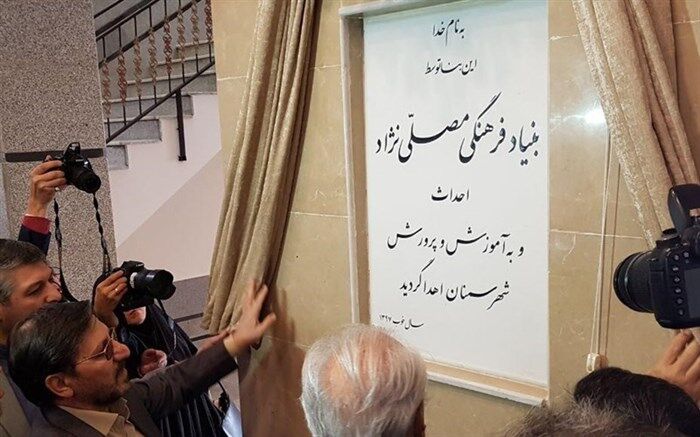 به نام خدا
این بنا توسط
بنیاد فرهنگی مصلّی نژاد
احداث
و به آموزش و پرورش
شهرستان اهدا گردید
سال ۱۳۹۷